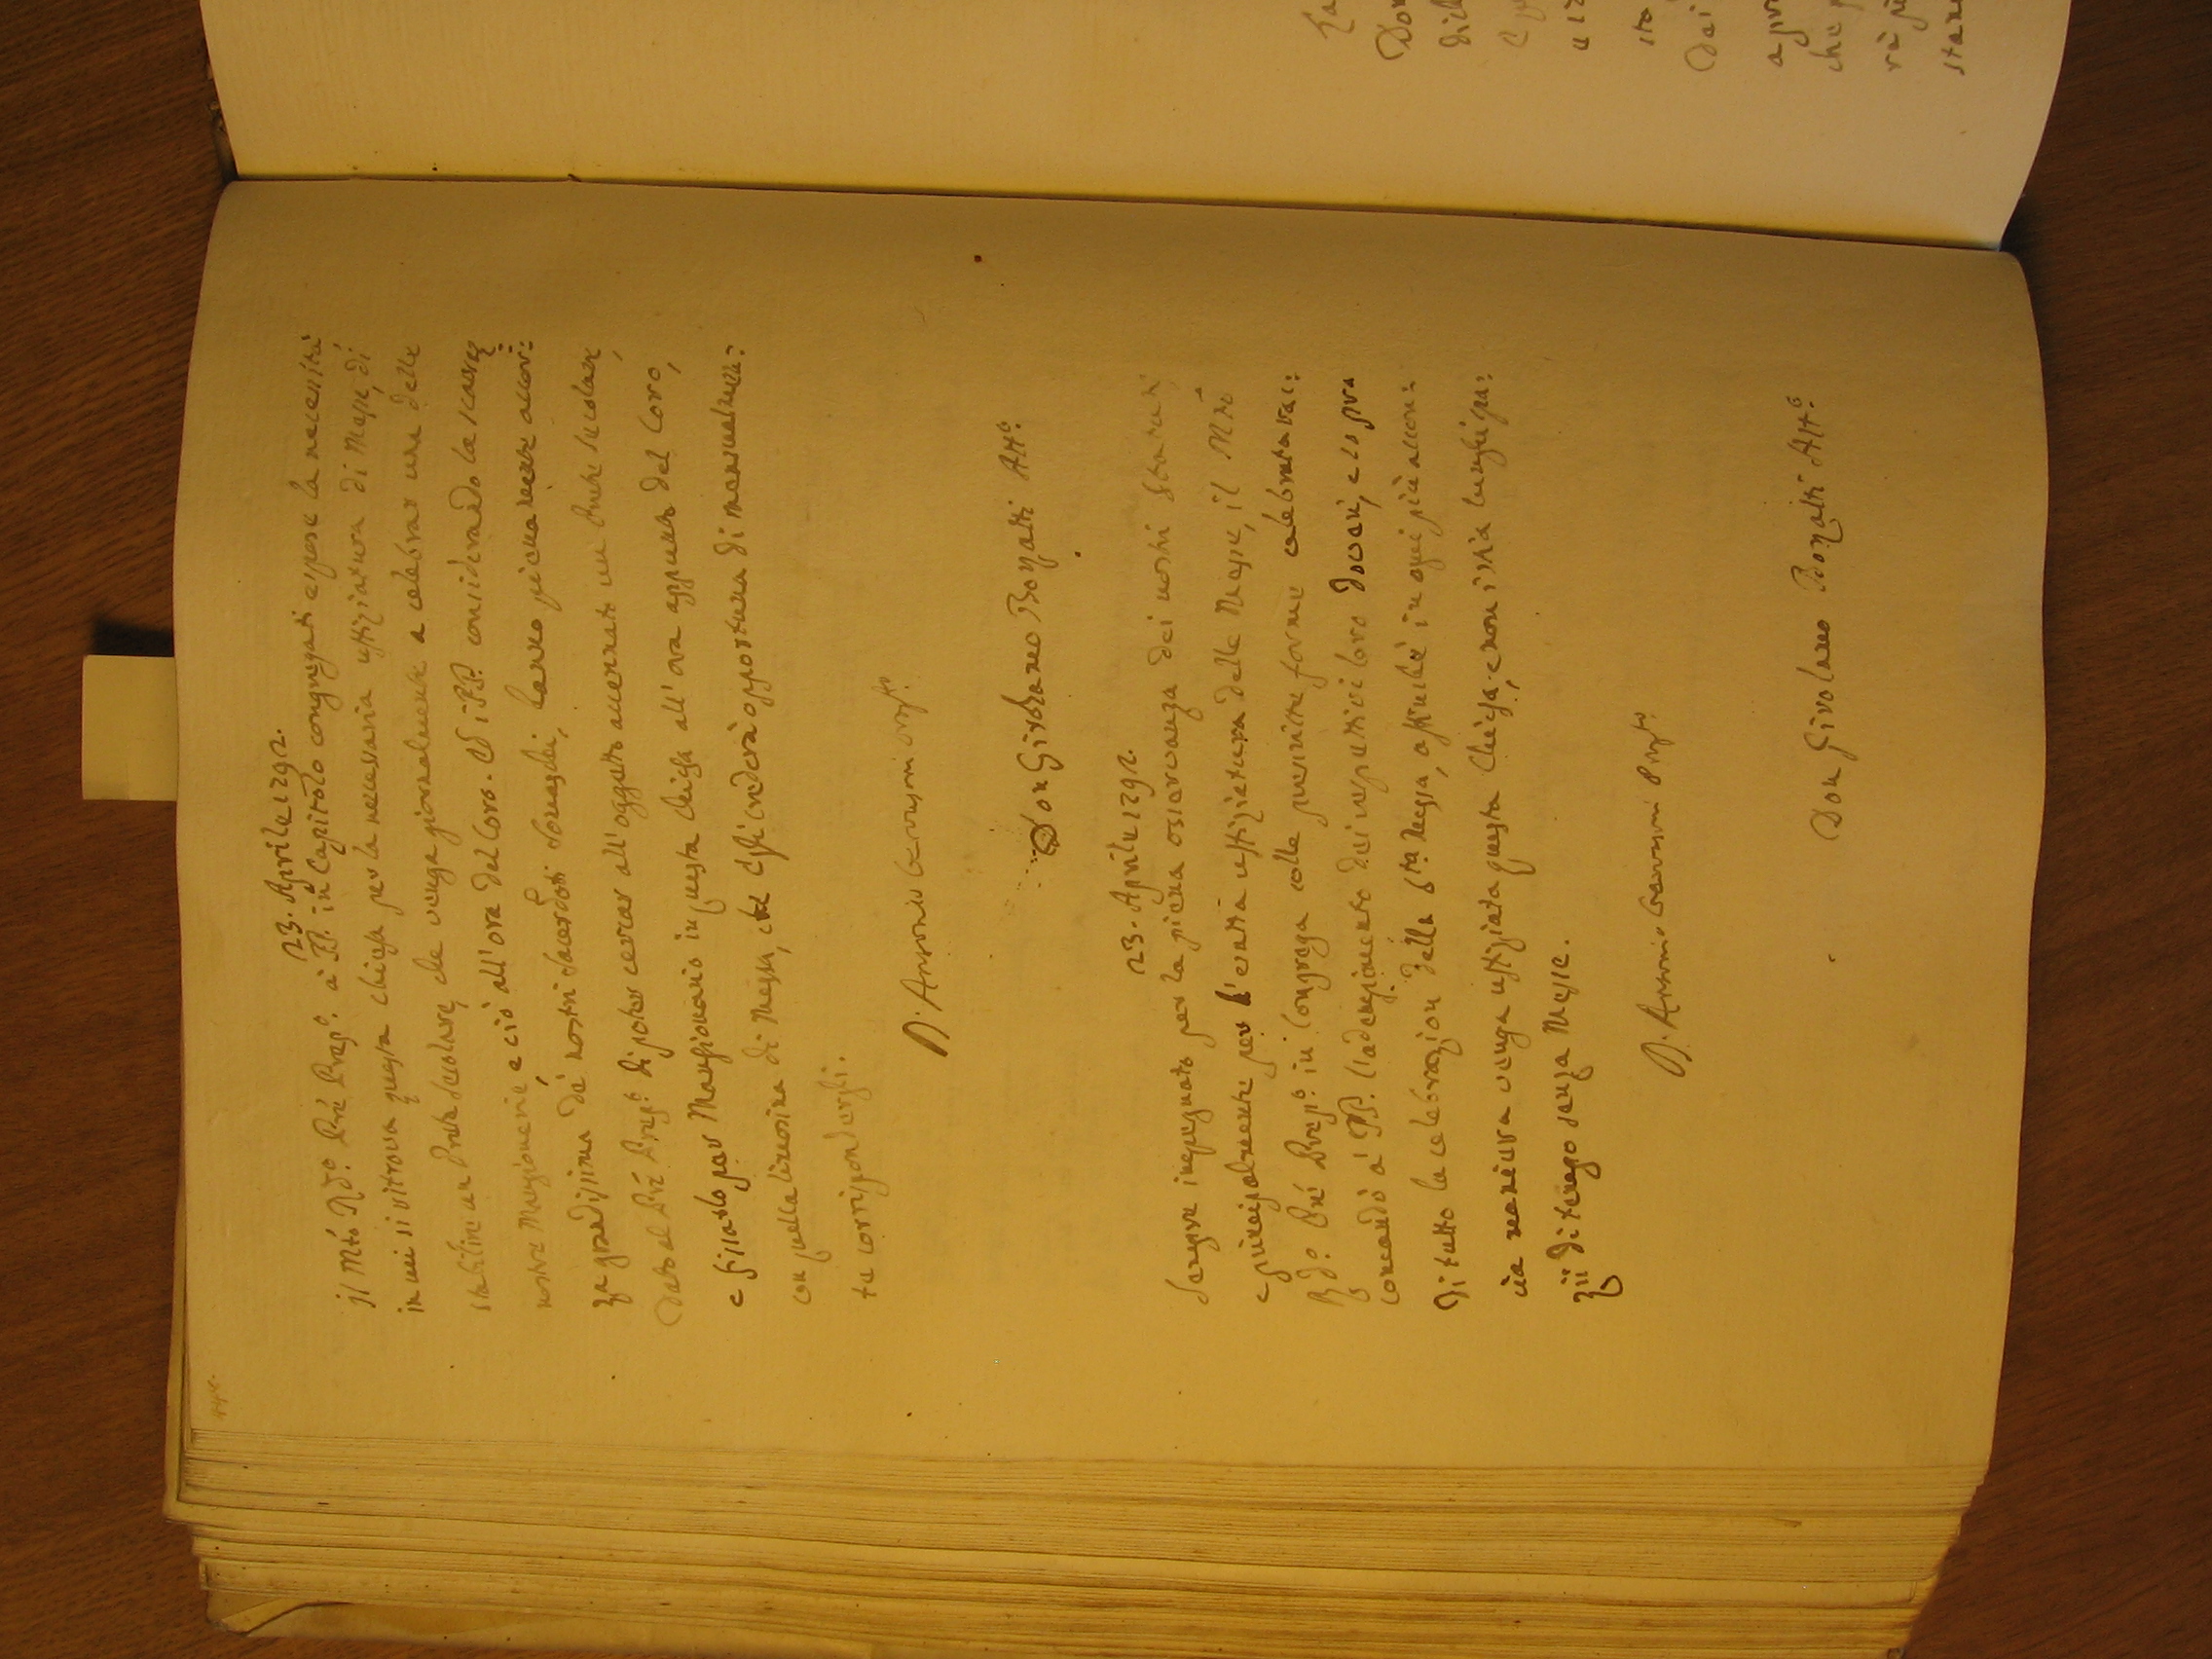 23. Aprile 1792.
il Mto Rdo. Pré Prepo. a' PP. in Capitolo congregati espose la necessità
in cui si ritrova questa chiesa per la necessaria uffiziatura di Messe, di
stabilire un Prete secolare, che venga giornalmente a celebrar una delle
nostre Messe e ciò all'ora del Coro. E i PP. considerando la scarsez
za grandissima de' nostri Sacerdoti Somaschi, hanno pienamente accor:
dato al Pré Prepo. di poter cercar all'oggetto accennato un Prete secolare,
e fissarlo per Mansionario in questa chiesa all'ora appunto del Coro,
con quella limosina di Messa, che egli crederà opportuna di mensualmen:
te corrispondergli.
D. Antonio Commini Prepto.
Don Girolamo Bonzatti Atto.
23. Aprile 1792.
Sempre impegnato per la piena osservanza dei nostri
e principalmente per l'esatta uffiziatura delle Messe, il Mto
Rdo. Pré Prepo. in Congrega colle forme
comandò a' PP. l'adempimento dei rispettivi loro doveri, e sopra
di tutto la celebrazion della Sta. Messa, affinchè in ogni più
cia maniera venga uffiziata questa Chiesa, e non istia lunghi spa:
zii di tempo senza Messe.
D. Antonio Prepto.
Don Girolamo Bonzatti Atto.